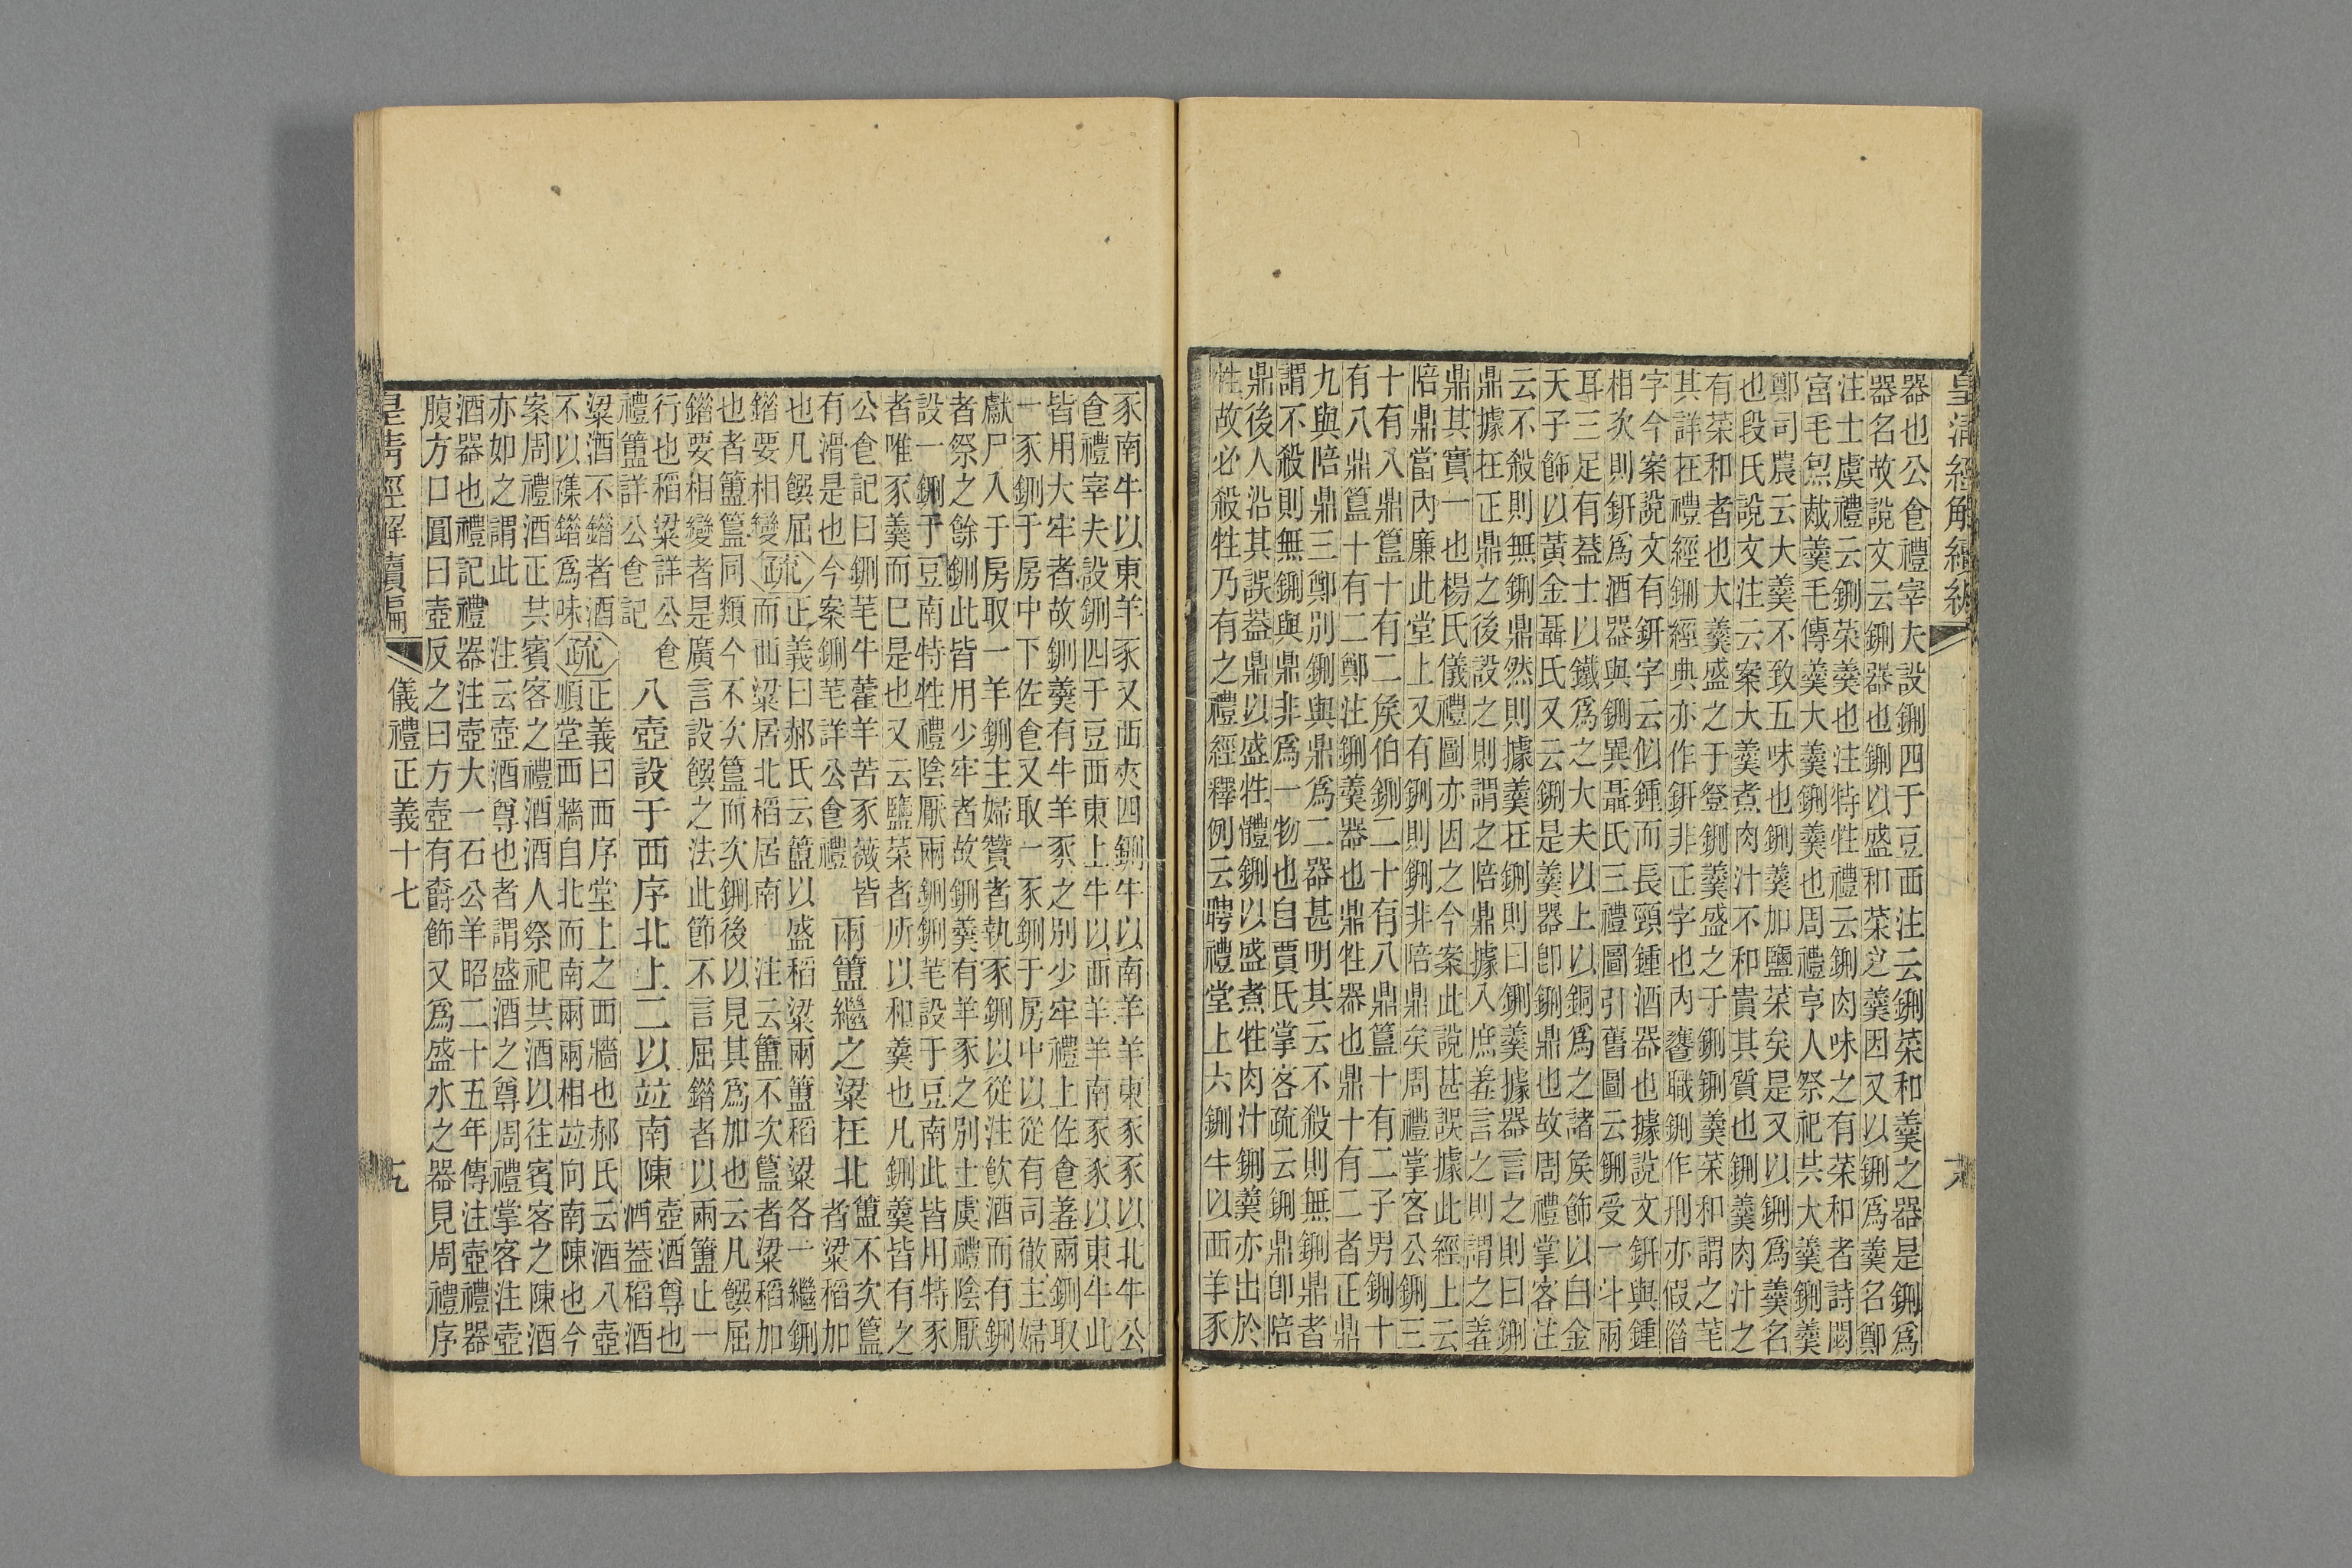 皇清經解續編
器也公食禮宰夫設鉶四于豆西注云鉶菜和羹之器是鉶爲
器名故說文云鉶器也鉶以盛和菜之羹因又以鉶爲羹名鄭
注士虞禮云鉶菜羹也注特牲禮云鉶肉味之有菜和者詩閟
宮毛炰胾羹毛傳羹大羹鉶羹也周禮亨人祭祀共大羹鉶羹
鄭司農云大羹不致五味也鉶羹加鹽菜矣是又以鉶爲羹名
也段氏說文注云案大羹煮肉汁不和貴其質也鉶羹肉汁之
有菜和者也大羹盛之于豋鉶羹盛之于鉶鉶羹菜和謂之芼
其詳在禮經鉶經典亦作鈃非正字也內饔職鉶作刑亦假借
字今案說文有鈃字云似鍾而長頸鍾酒器也據說文鈃與鍾
相次則鈃爲酒器與鉶異聶氏三禮圖引舊圖云鉶受一斗兩
耳三足有葢士以鐵爲之大夫以上以銅爲之諸矦飾以白金
天子飾以黃金聶氏又云鉶是羹器卽鉶鼎也故周禮掌客注
云不殺則無鉶鼎然則據羹在鉶則曰鉶羹據器言之則曰鉶
鼎據在正鼎之後設之則謂之陪鼎據入庶羞言之則謂之羞
鼎其實一也楊氏儀禮圖亦因之今案此說甚誤據此經上云
陪鼎當內廉此堂上又有鉶則鉶非陪鼎矣周禮掌客公鉶三
十有八鼎簋十有二矦伯鉶二十有八鼎簋十有二子男鉶十
有八鼎簋十有二鄭注鉶羹器也鼎牲器也鼎十有二者正鼎
九與陪鼎三鄭別鉶與鼎爲二器甚明其云不殺則無鉶鼎者
謂不殺則無鉶與鼎非爲一物也自賈氏掌客疏云鉶鼎卽陪
鼎後人沿其誤葢鼎以盛牲體鉶以盛煮牲肉汁鉶羹亦出於
牲故必殺牲乃有之禮經釋例云聘禮堂上六鉶牛以西羊豕
豕南牛以東羊豕又西夾四鉶牛以南羊羊東豕豕以北牛公
食禮宰夫設鉶四于豆西東上牛以西羊羊南豕豕以東牛此
皆用大牢者故鉶羹有牛羊豕之別少牢禮上佐食羞兩鉶取
一豕鉶于房中下佐食又取一豕鉶于房中以從有司徹主婦
獻尸入于房取一羊鉶主婦贊者執豕鉶以從注飮酒而有鉶
者祭之餘鉶此皆用少牢者故鉶羹有羊豕之別士虞禮陰厭
設一鉶于豆南特牲禮陰厭兩鉶鉶芼設于豆南此皆用特豕
者唯豕羹而已是也又云鹽菜者所以和羹也凡鉶羹皆有之
公食記曰鉶芼牛藿羊苦豕薇皆
有滑是也今案鉶芼詳公食禮
兩簠繼之粱在北
簠不次簋
者粱稻加
也凡饌屈
錯要相變
疏
正義曰郝氏云簠以盛稻粱兩簠稻粱各一繼鉶
而西粱居北稻居南　注云簠不次簋者粱稻加
也者簠簋同類今不次簋而次鉶後以見其爲加也云凡饌屈
錯要相變者是廣言設饌之法此節不言屈錯者以兩簠止一
行也稻粱詳公食
禮簠詳公食記
八壺設于西序北上二以竝南陳
壺酒尊也
酒葢稻酒
粱酒不錯者酒
不以襍錯爲味
疏
正義曰西序堂上之西牆也郝氏云酒八壺
順堂西牆自北而南兩兩相竝向南陳也今
案周禮酒正共賓客之禮酒酒人祭祀共酒以往賓客之陳酒
亦如之謂此　注云壺酒尊也者謂盛酒之尊周禮掌客注壺
酒器也禮記禮器注壺大一石公羊昭二十五年傳注壺禮器
腹方口圓曰壺反之曰方壺有爵飾又爲盛水之器見周禮序
皇清經解續編
儀禮正義十七